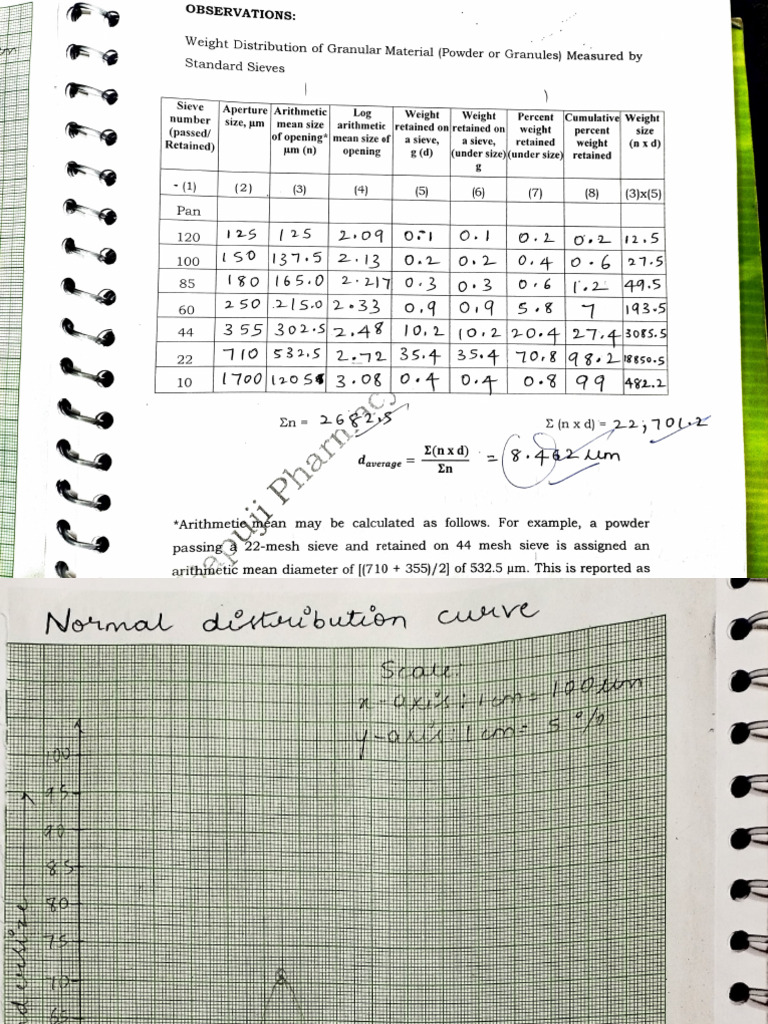 OBSERVATIONS:
Weight Distribution of Granular Material (Powder or Granules) Measured by
Standard Sieves
Sieve number (passed/ Retained) Aperture size, µm Arithmetic mean size of opening* µm (n) Log arithmetic mean size of opening Weight retained on a sieve, g (d) Weight retained on a sieve, (under size) g Percent weight retained (under size) Cumulative percent weight retained Weight size (n x d)
- (1) (2) (3) (4) (5) (6) (7) (8) (3)x(5)
Pan
120 125 125 2.09 0.1 0.1 0.2 0.2 12.5
100 150 137.5 2.13 0.2 0.2 0.4 0.6 27.5
85 180 165.0 2.217 0.3 0.3 0.6 1.2 49.5
60 250 215.0 2.33 0.9 0.9 5.8 7 193.5
44 355 302.5 2.48 10.2 10.2 20.4 27.4 3085.5
22 710 532.5 2.72 35.4 35.4 70.8 98.2 18850.5
10 1700 1205 3.08 0.4 0.4 0.8 99 482.2
Σn = 2682.5 Σ (n x d) = 22,701.2
d average = Σ(n x d) / Σn = 8.462 um
Pharmacy
*Arithmetic mean may be calculated as follows. For example, a powder
passing a 22-mesh sieve and retained on 44 mesh sieve is assigned an
arithmetic mean diameter of [(710 + 355)/2] of 532.5 µm. This is reported as
Normal distribution curve
Scale:
x-axis: 1cm = 100um
y-axis: 1cm = 5%
100
95
90
85
80
75
70
65